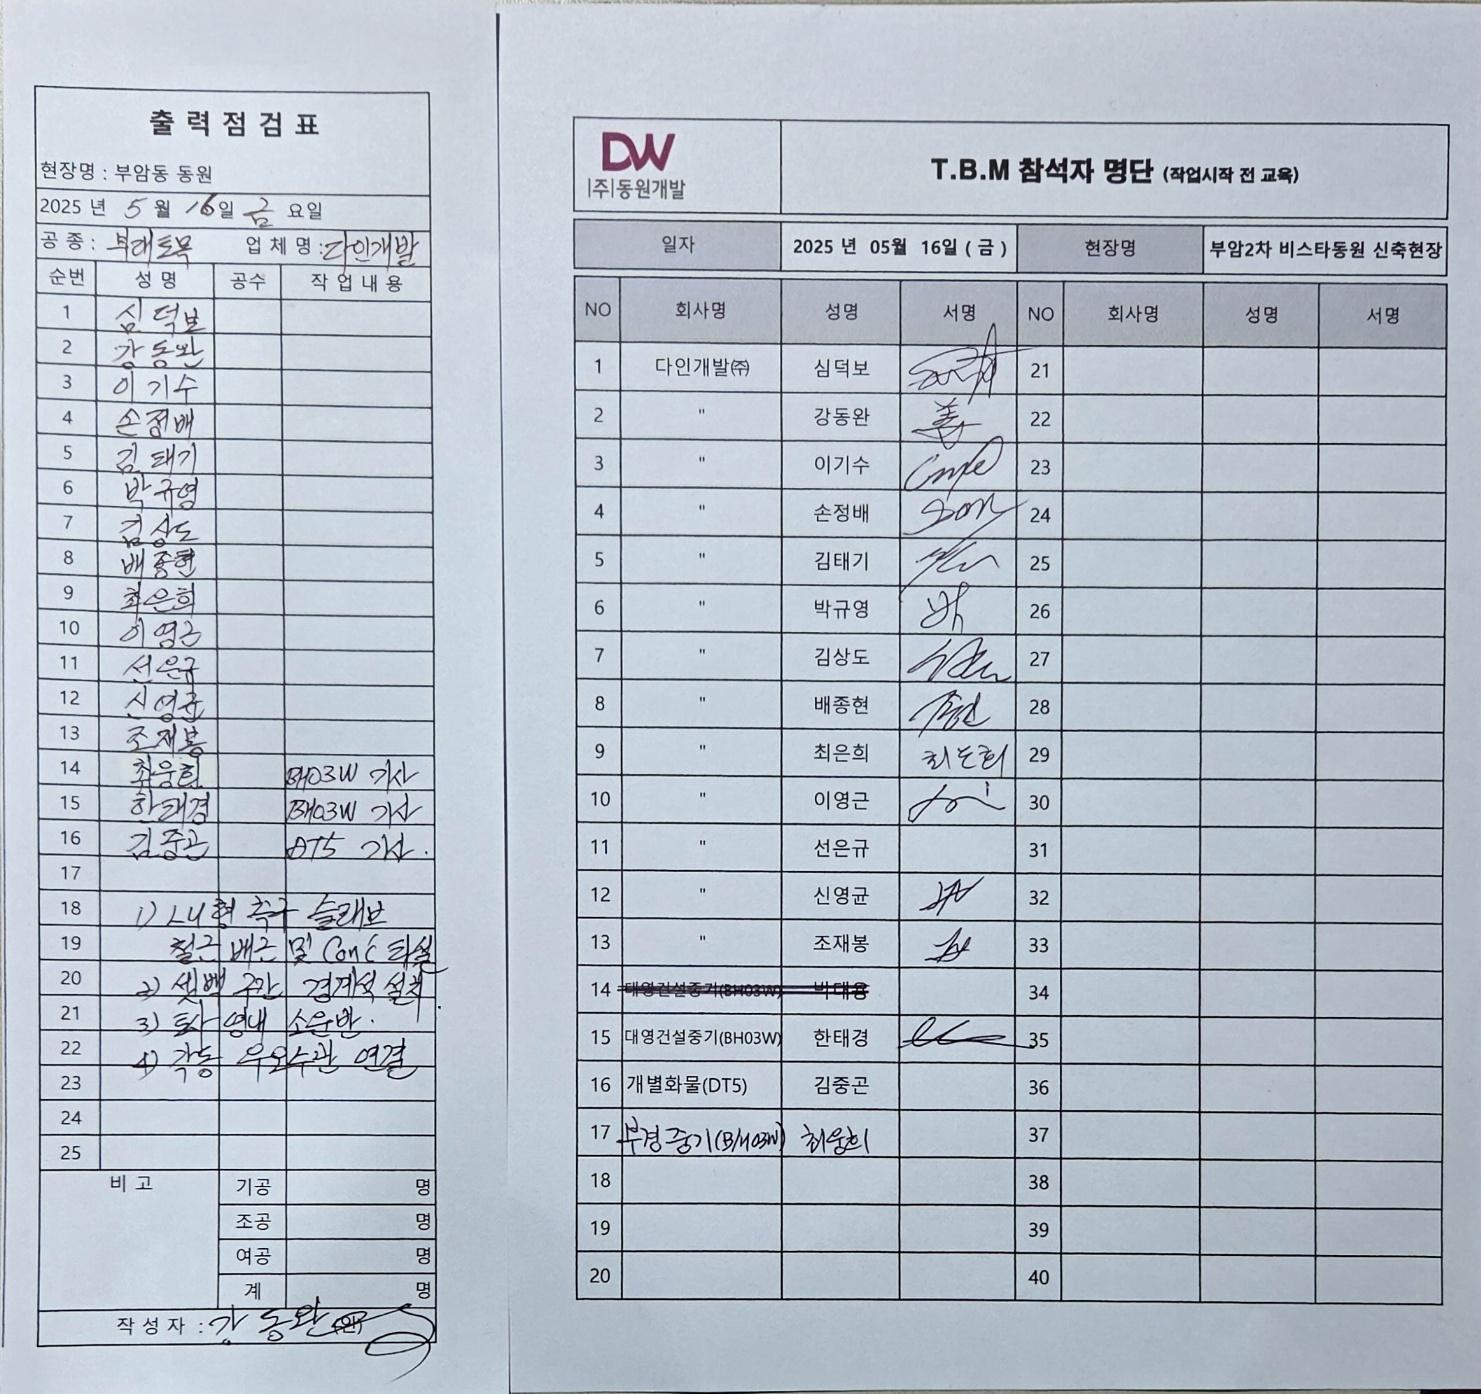 출력점검표
현장명 : 부암동 동원
2025 년 5 월 16일 금 요일
공 종 : 부대토목 업 체 명 : 다인개발
순번 성 명 공수 작 업 내 용
1 심덕보
2 강동완
3 이기수
4 손정배
5 김태기
6 박규영
7 김상도
8 배종현
9 최은희
10 이영근
11 선은규
12 신영균
13 조재봉
14 최웅희 BH03W 기사
15 한태경 BH03W 기사
16 김중곤 DT5 기사.
17
18 1) L형 측구 슬래브
19 철근 배근 및 Conc 타설
20 2) 셋백 구간 경계석 설치.
21 3) 토사 영내 소운반.
22 4) 각동 우오수관 연결
23
24
25
비 고 기공 명
조공 명
여공 명
계 명
작 성 자 : 강동완 (인)
DW
(주)동원개발
T.B.M 참석자 명단 (작업시작 전 교육)
일자 2025 년 05월 16일 ( 금 ) 현장명 부암2차 비스타동원 신축현장
NO 회사명 성명 서명 NO 회사명 성명 서명
1 다인개발㈜ 심덕보 21
2 " 강동완 姜 22
3 " 이기수 23
4 " 손정배 Son 24
5 " 김태기 25
6 " 박규영 박 26
7 " 김상도 27
8 " 배종현 28
9 " 최은희 최은희 29
10 " 이영근 30
11 " 선은규 31
12 " 신영균 32
13 " 조재봉 33
14 대영건설중기(BH03W) 박대용 34
15 대영건설중기(BH03W) 한태경 35
16 개별화물(DT5) 김중곤 36
17 부경중기(BH03W) 최웅희 37
18 38
19 39
20 40